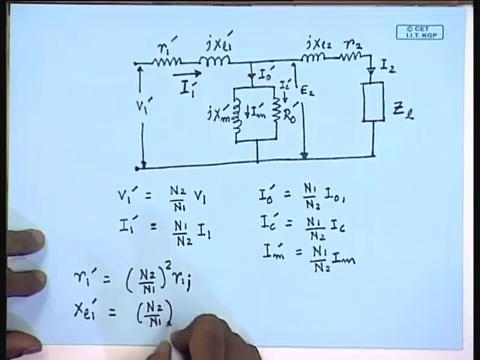 © CET
I.I.T. KGP
r₁′ jxₑ₁′ jxₑ₂ r₂
I₁′ I₀′ I₂
V₁′ jx′ₘ I′ₘ I꜀′ R₀′ E₂ Zₗ
V₁′ = N₂/N₁ V₁ I₀′ = N₁/N₂ I₀₁
I₁′ = N₁/N₂ I₁ I꜀′ = N₁/N₂ I꜀
I′ₘ = N₁/N₂ Iₘ
r₁′ = (N₂/N₁)² r₁;
xₑ₁′ = (N₂/N₁)